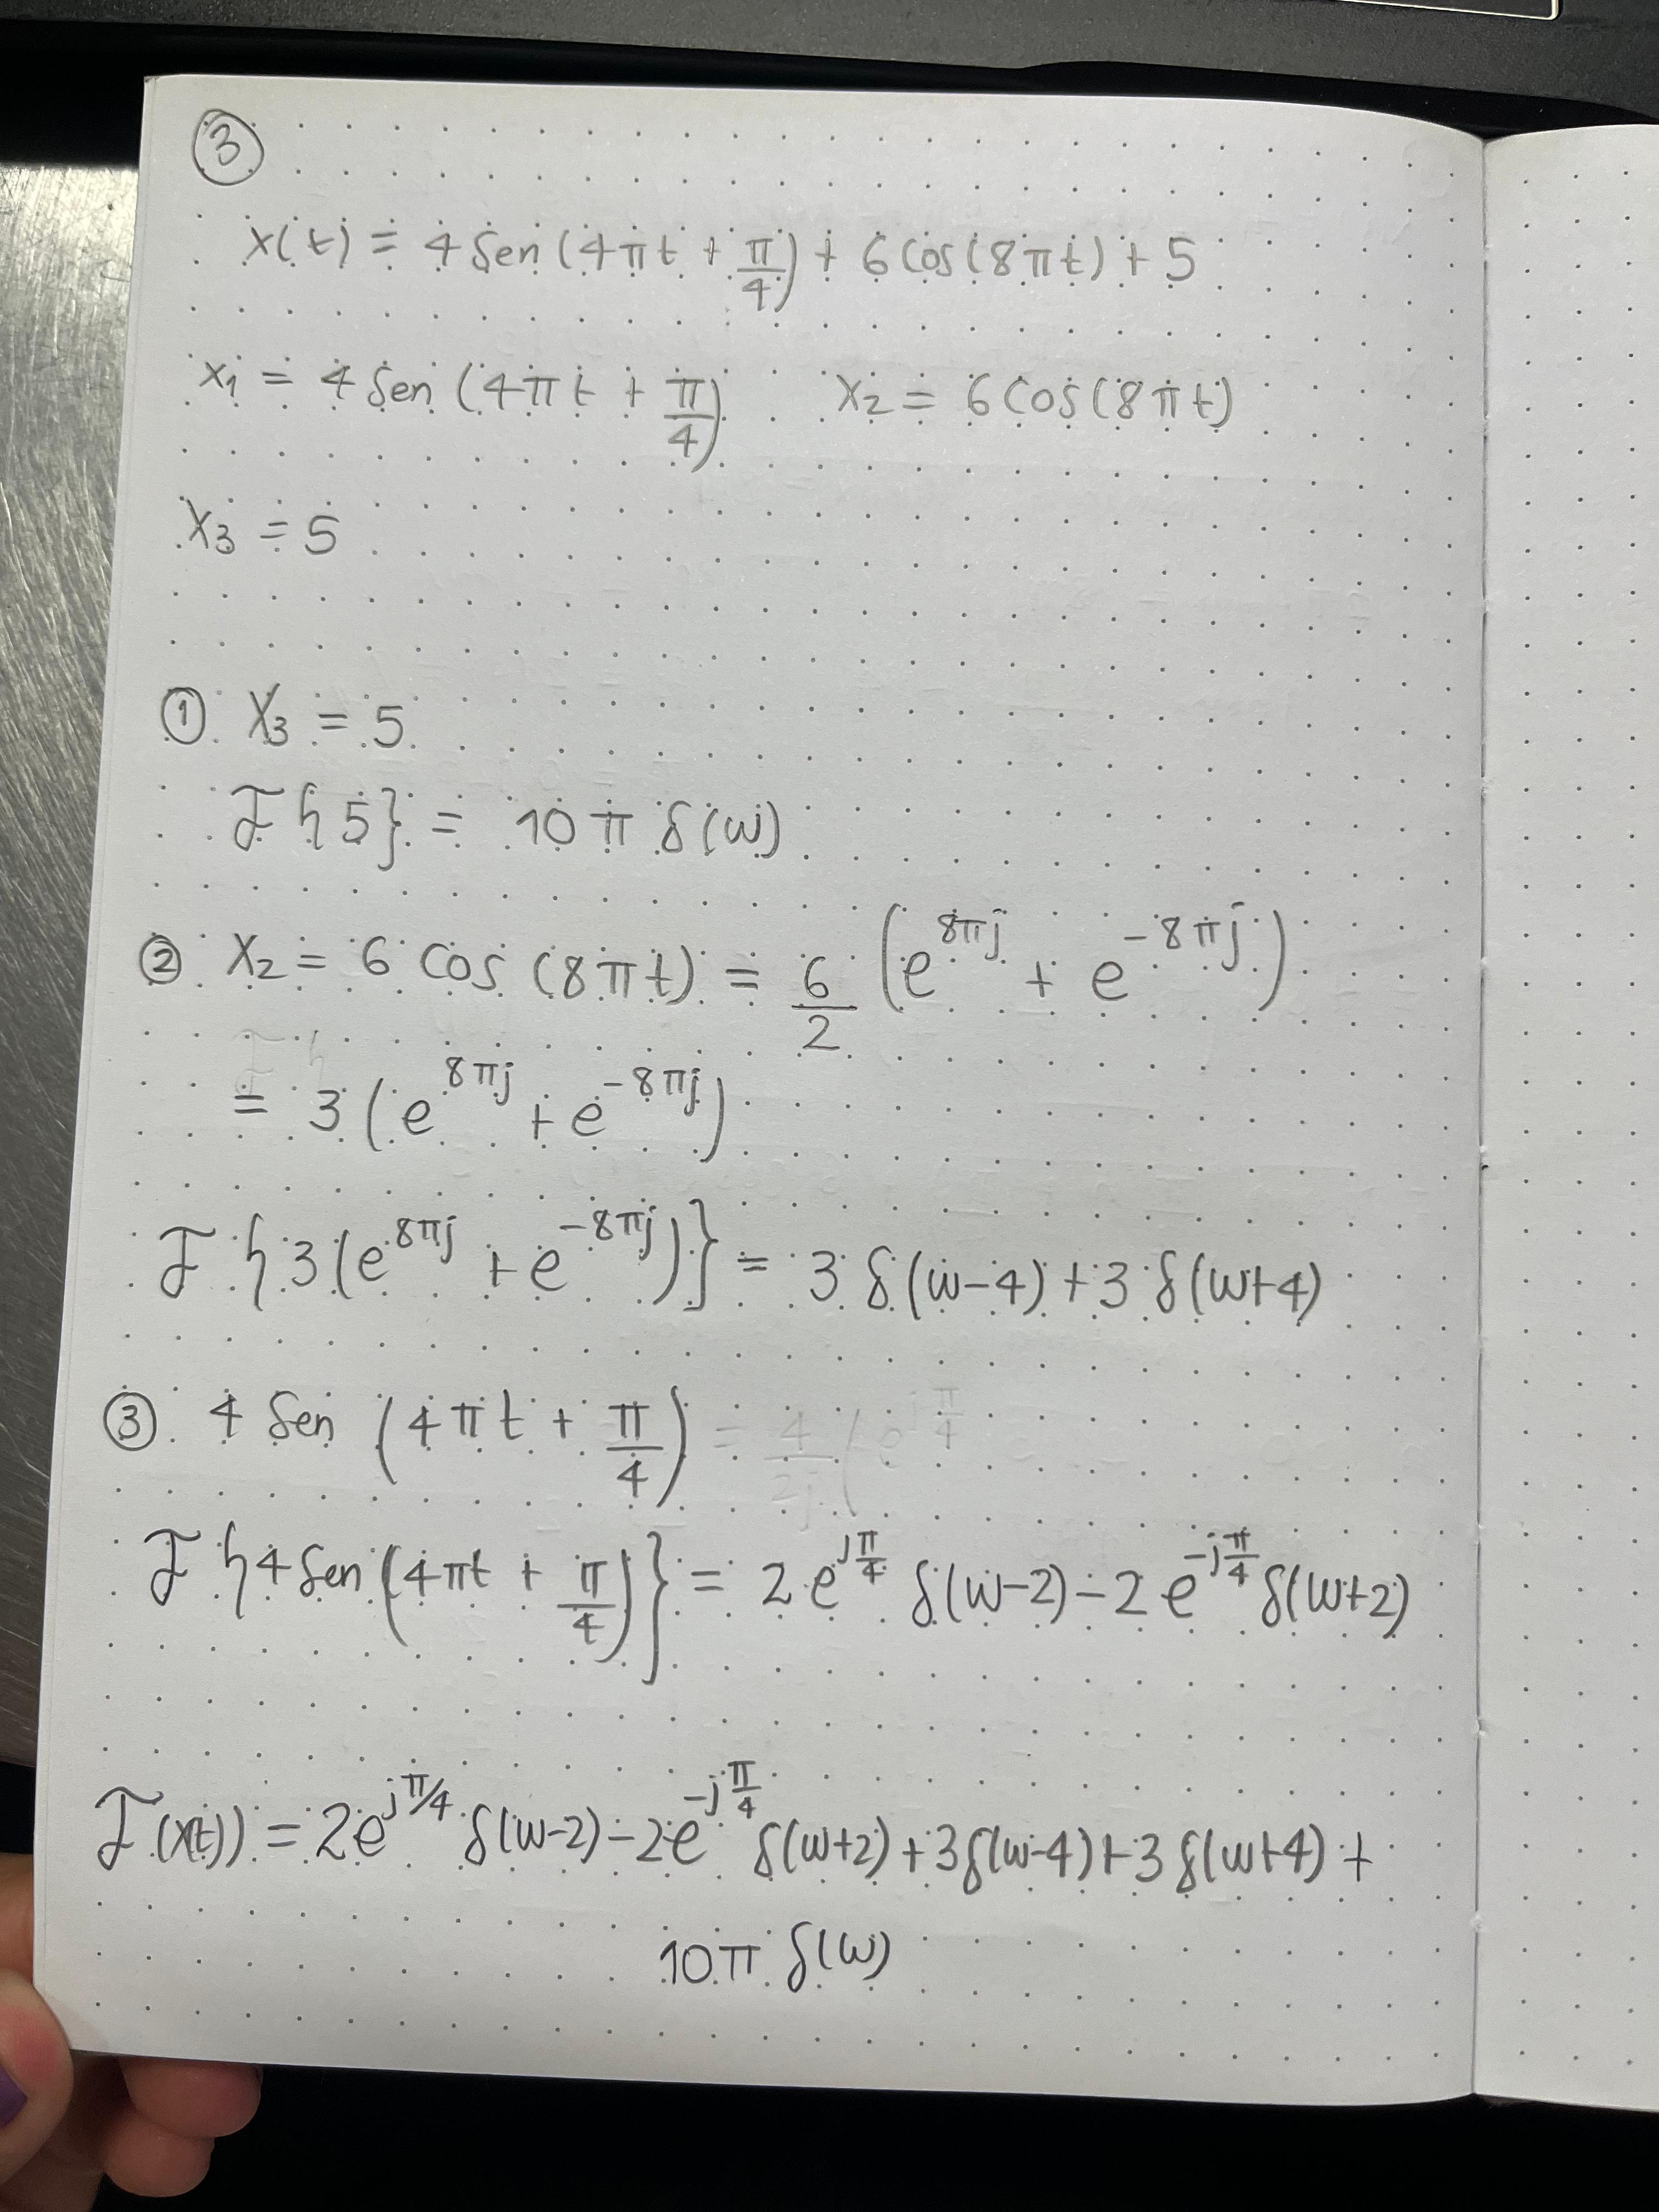 ③
x(t) = 4 Sen(4πt + π/4) + 6 Cos(8πt) + 5
x₁ = 4 Sen(4πt + π/4)   x₂ = 6 Cos(8πt)
X₃ = 5
① X₃ = 5
ℱ{5} = 10π δ(w)
② X₂ = 6 Cos (8πt) = 6/2 (e^{8πj} + e^{-8πj})
= 3 (e^{8πj} + e^{-8πj})
ℱ{3(e^{8πj} + e^{-8πj})} = 3 δ(w-4) + 3 δ(w+4)
③ 4 Sen (4πt + π/4)
ℱ{4 Sen(4πt + π/4)} = 2 e^{jπ/4} δ(w-2) - 2 e^{-jπ/4} δ(w+2)
ℱ(x(t)) = 2e^{jπ/4} δ(w-2) - 2e^{-jπ/4} δ(w+2) + 3δ(w-4) + 3 δ(w+4) +
10π δ(w)